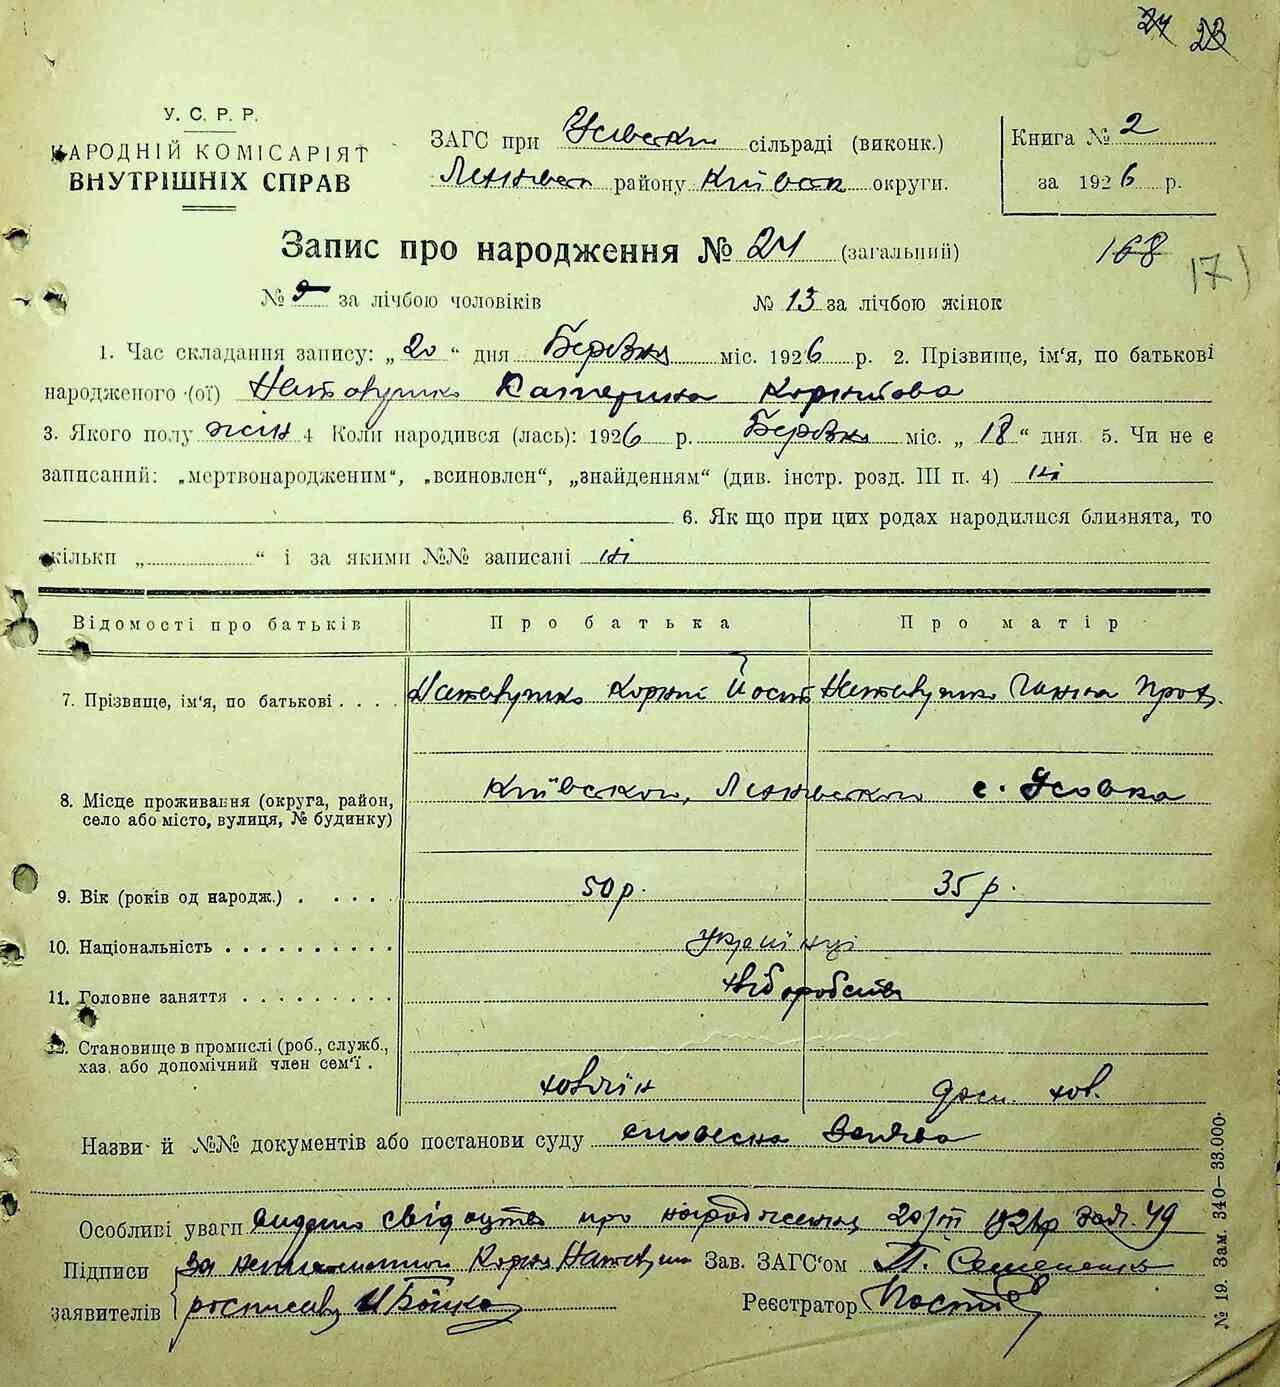 24 23
У. С. Р. Р.
НАРОДНІЙ КОМІСАРІЯТ
ВНУТРІШНІХ СПРАВ
ЗАГС при Усівскій сільраді (виконк.)
району Київськ округи.
Книга № 2
за 1926 р.
Запис про народження № 24 (загальний)
168 17)
№ за лічбою чоловіків № 13 за лічбою жінок
1. Час складання запису: „20“ дня Березня міс. 1926 р. 2. Прізвище, ім'я, по батькові
народженого (ої) Катерина Корніїова
3. Якого полу жін 4 Коли народився (лась): 1926 р. Березня міс. „18“ дня. 5. Чи не є
записаний: „мертвонародженим“, „всиновлен“, „знайденням“ (див. інстр. розд. III п. 4) ні
6. Як що при цих родах народилися близнята, то
скільки „ “ і за якими №№ записані ні
Відомості про батьків Про батька Про матір
7. Прізвище, ім'я, по батькові . . . . Корній Йосип Ганна
8. Місце проживання (округа, район,
село або місто, вулиця, № будинку) Київської, с. Усовка
9. Вік (років од народж.) . . . . . 50 р. 35 р.
10. Національність . . . . . . . . . . українці
11. Головне заняття . . . . . . . . . хліборобств
12. Становище в промислі (роб., служб.,
хаз. або допомічний член сем'ї .
хозяїн
Назви й №№ документів або постанови суду словесна заява
Особливі уваги видано свідоцтво про народження 20/III 1926р 49
Підписи за неписьменного Корнія Зав. ЗАГС'ом П. Семененко
заявителів росписавсь Бойко Реєстратор
№ 19. Зам. 340—33.000.